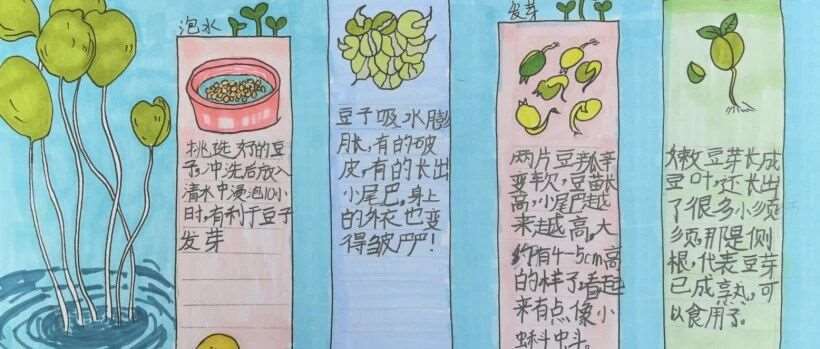 泡水
挑 好的豆
子,冲洗后放入
清水中浸泡10小
时,有利于豆子
发芽
豆子吸水膨
胀,有的破
皮,有的长出
小尾巴,身上
的外衣也变
得皱严严!
发芽
两片豆瓣
变软,豆苗长
高,小尾巴越
来越高,大
约有4-5cm高
的样子,看起
来有点像小
蝌蚪。
嫩豆芽长成
豆叶,还长出
了很多小须
须,那是侧
根,代表豆芽
已成熟,可
以食用了。